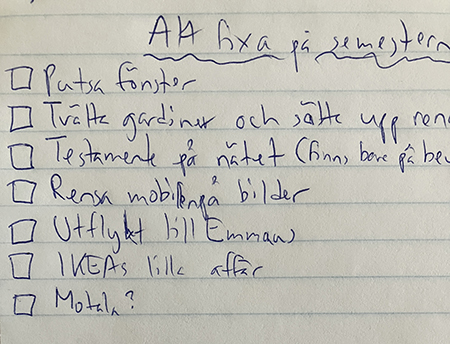 Att fixa på semestern
Putsa fönster
Tvätta gardiner och sätta upp rena
Testamente på nätet (finns bara på
Rensa mobilen på bilder
Utflykt till Emmaus
IKEAs lilla affär
Motala?